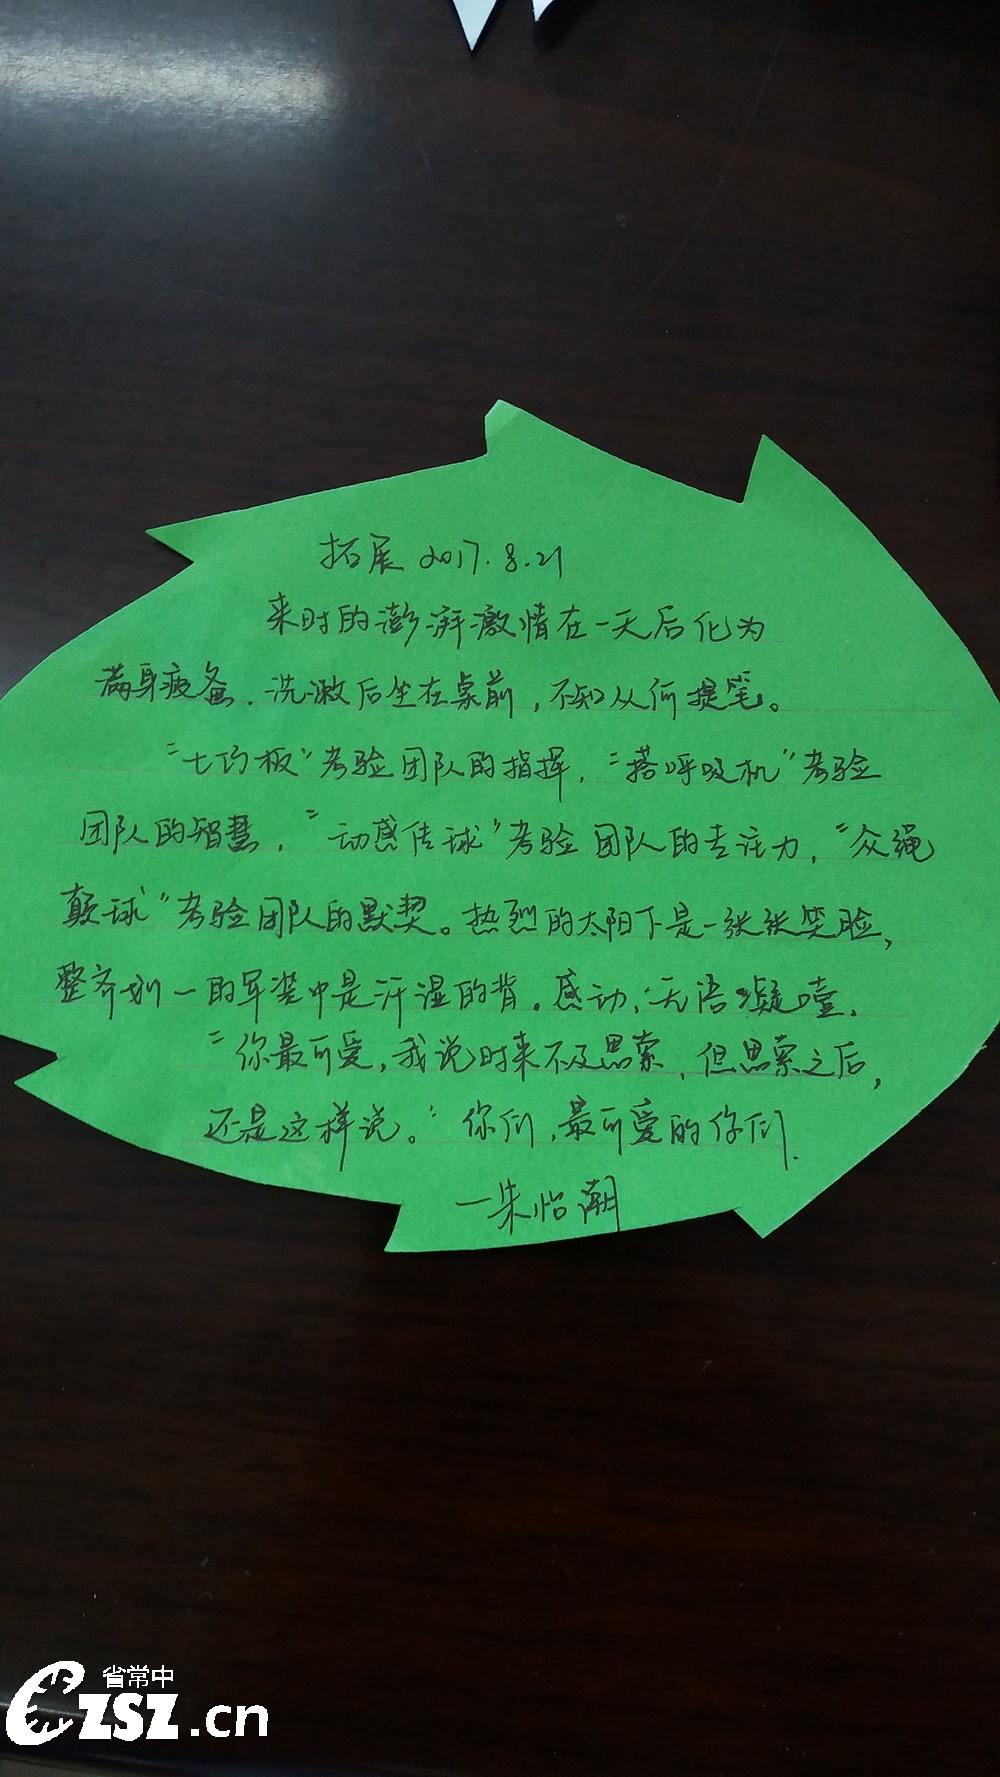 拓展 2017.8.21
来时的澎湃激情在一天后化为
满身疲惫.洗漱后坐在桌前,不知从何提笔。
"七巧板"考验团队的指挥,"搭呼吸机"考验
团队的智慧,"动感传球"考验团队的专注力,"众绳
颠球"考验团队的默契。热烈的太阳下是一张张笑脸,
整齐划一的军装中是汗湿的背。感动,无语凝噎.
"你最可爱,我说时来不及思索,但思索之后,
还是这样说。"你们,最可爱的你们.
—朱怡潮
省常中
CZSZ.cn